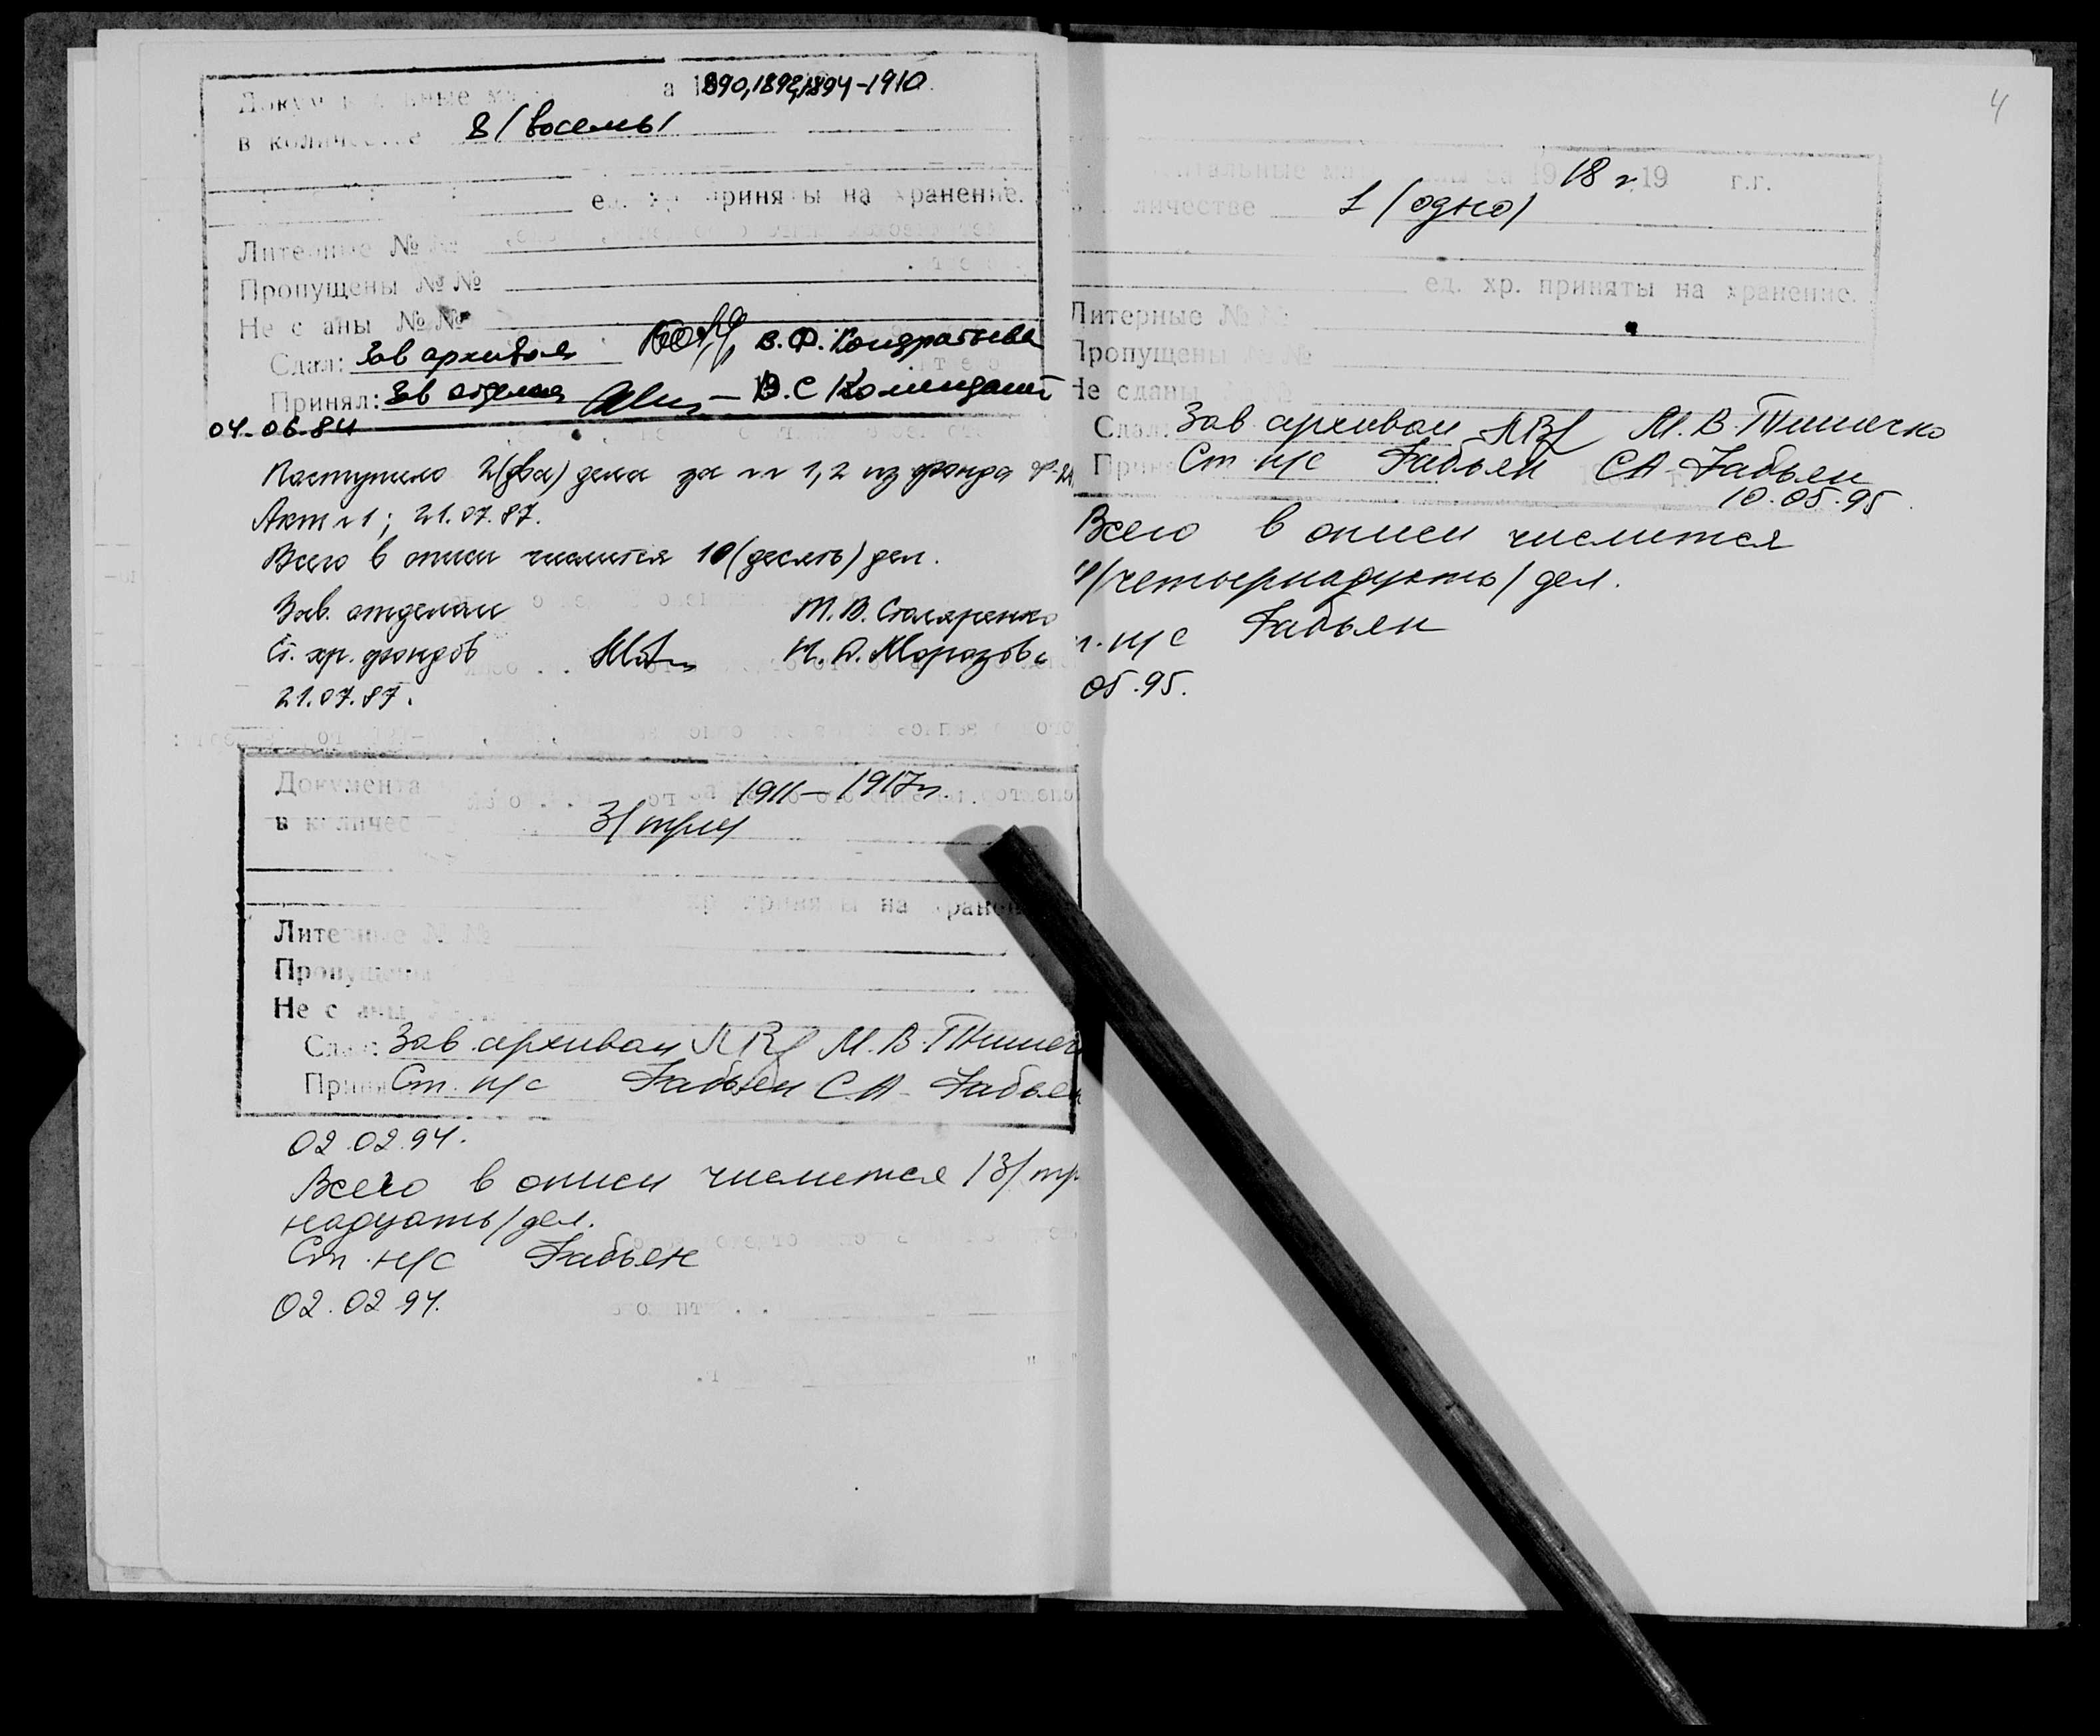 а 1890, 1892, 1894-1910.
в количестве 8 /восемь/
ед. хр. приняты на хранение.
Литерные № №
Пропущены № №
Не сданы № №
Сдал: Зав архивом В.Ф. Кондратьева
Принял: Зав отделом В.С Комендант
04.06.84
Поступило 2(два) дела за №№ 1,2 из фонда
Акт №1; 21.07.87.
Всего в описи числится 10(десять) дел.
Зав. отделом Т.В. Столяренко
Ст. хр. фондов Морозова
21.07.87.
Документа 1911-1917гг.
в количес 3/три/
хр приняты на хранен
Литерные № №
Пропущены
Не сданы
Сдал: Зав архивом М.В.
Принял Ст. н/с Забьен С.А. Забьен
02.02.94.
Всего в описи числится 13/тр
надцать/дел.
Ст. н/с Забьен
02.02.94.
4
нтальные материалы за 1918 г. 19 г.г.
личестве 1 (одно)
ед. хр. приняты на хранение.
Литерные № №
Пропущены № №
Не сданы № №
Сдал: Зав архивом М.В.
Принял Ст. н/с Забьен С.А. Забьен
10.05.95
Всего в описи числится
/четырнадцать/ дел.
н/с Забьен
05.95.